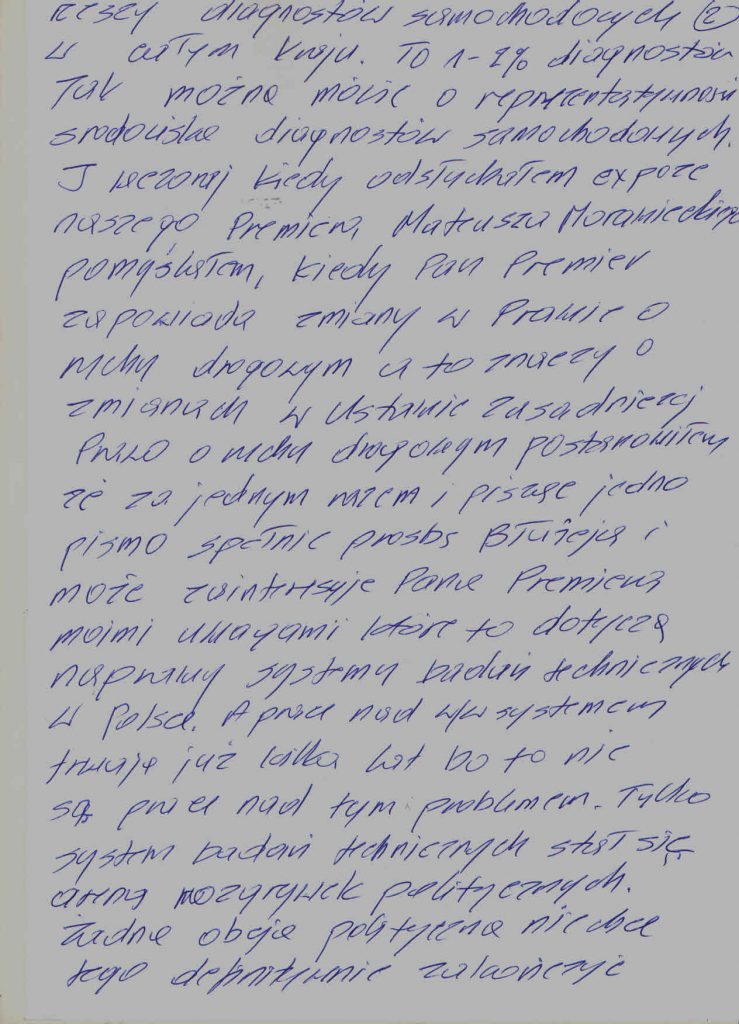 rzeszy diagnostów samochodowych (2)
w całym kraju. To 1-2% diagnostów
Tak można mówić o reprezentatywności
środowiska diagnostów samochodowych.
I wczoraj kiedy odsłuchałem expoze
naszego Premiera Mateusza Morawieckiego
pomyślałem, kiedy Pan Premier
zapowiada zmiany w Prawie o
ruchu drogowym a to znaczy o
zmianach w Ustawie Zasadniczej
Prawo o ruchu drogowym postanowiłem
że za jednym razem i pisząc jedno
pismo spełnić prośbę Błażeja i
może zainteresuje Pana Premiera
moimi uwagami które to dotyczą
naprawy systemu badań technicznych
w Polsce. A prace nad w/w systemem
trwają już kilka lat bo to nie
są prace nad tym problemem. Tylko
system badań technicznych stał się
areną rozgrywek politycznych.
Żadna opcja polityczna nie chce
tego definitywnie zakończyć